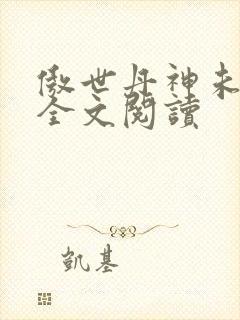 傲世丹神未
全文閱讀
凱基